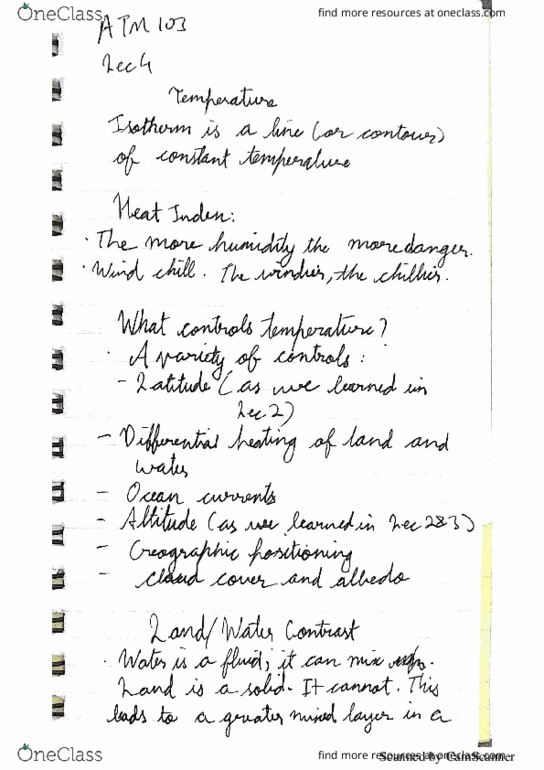 OneClass
find more resources at oneclass.com
ATM 103
Lec 4
Temperature
Isotherm is a line (or contour)
of constant temperature
Heat Index:
· The more humidity the more danger.
· Wind chill. The windier, the chillier.
What controls temperature?
· A variety of controls:
- Latitude (as we learned in
Lec 2)
- Differential heating of land and
water
- Ocean currents
- Altitude (as we learned in Lec 2&3)
- Geographic positioning
- cloud cover and albedo
Land/Water Contrast
· Water is a fluid; it can mix
Land is a solid. It cannot. This
leads to a greater mixed layer in a
OneClass
find more resources at oneclass.com
Scanned by CamScanner